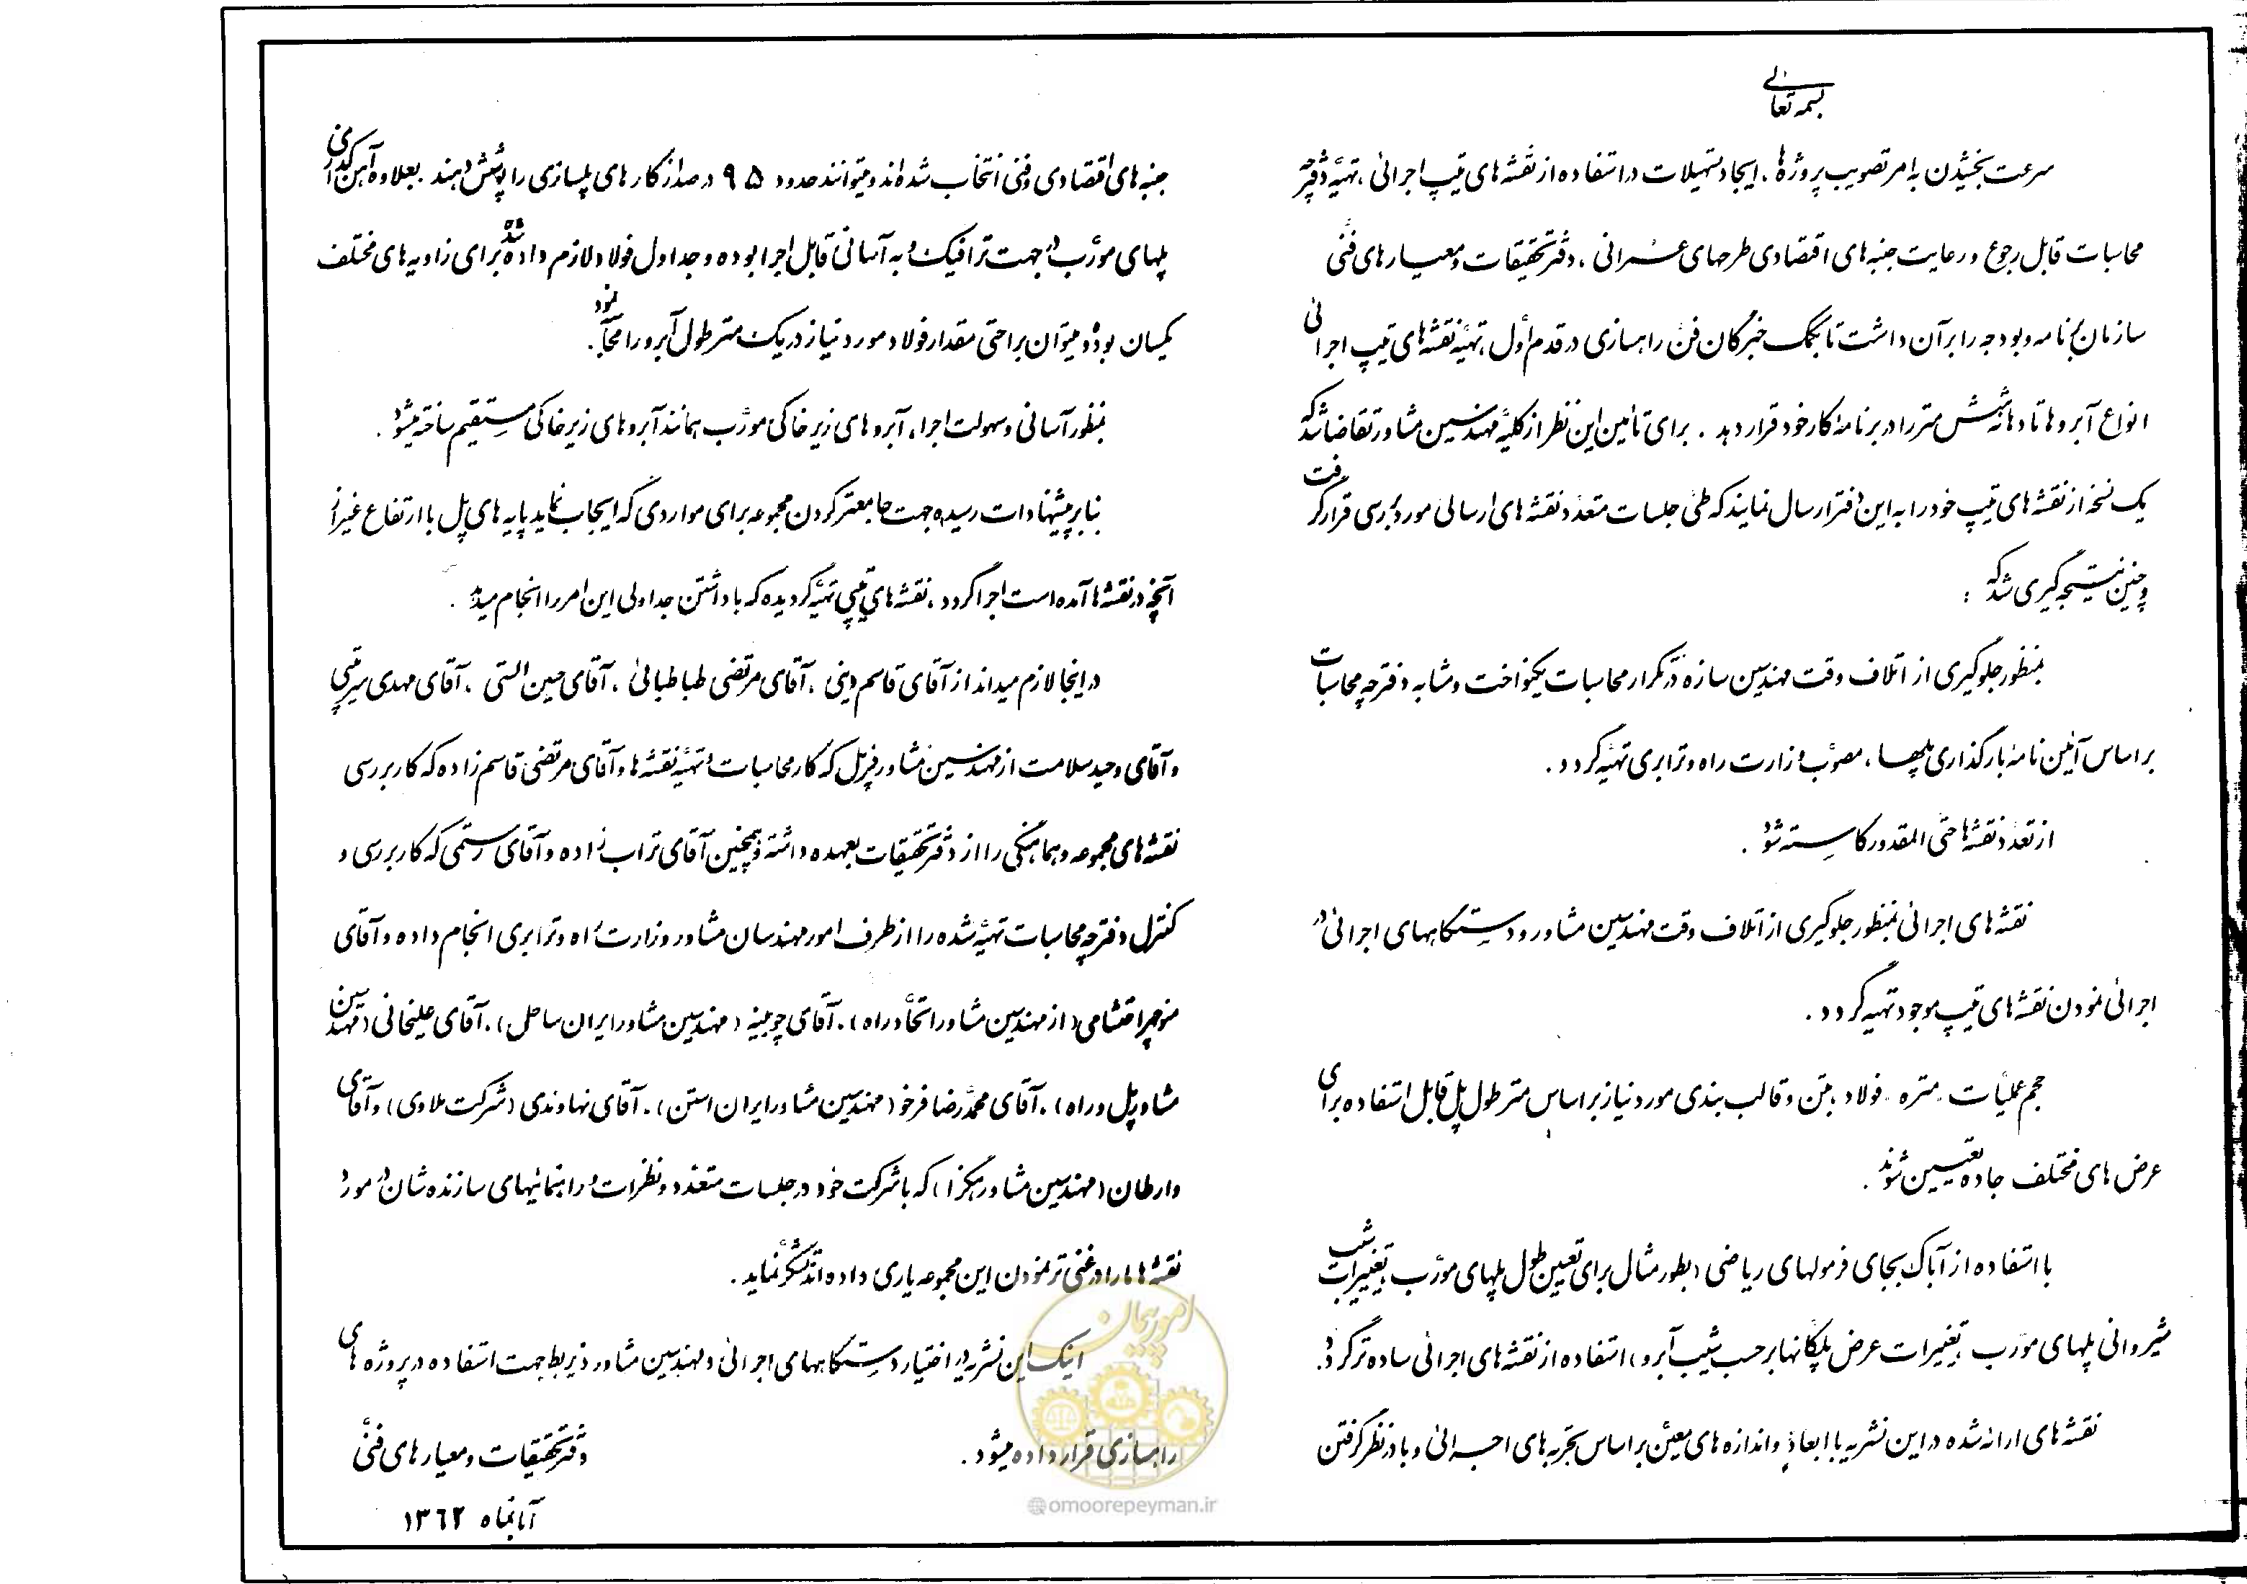 بسمه تعالی
سرعت بخشیدن به امر تصویب پروژه‌ها، ایجاد تسهیلات در استفاده از نقشه‌های تیپ اجرائی، تهیهٔ دفترچه
محاسبات قابل رجوع و رعایت جنبه‌های اقتصادی طرحهای عمرانی، دفتر تحقیقات و معیارهای فنی
سازمان برنامه و بودجه را بر آن داشت تا بکمک خبرگان فن راهسازی در قدم اول، تهیهٔ نقشه‌های تیپ اجرائی
انواع آبروها تا دهانهٔ شش متر را در برنامهٔ کار خود قرار دهد. برای تأمین این نظر از کلیهٔ مهندسین مشاور تقاضا شد که
یک نسخه از نقشه‌های تیپ خود را به این دفتر ارسال نمایند که طی جلسات متعدد نقشه‌های ارسالی مورد بررسی قرار گرفت
و چنین نتیجه‌گیری شد که :
بمنظور جلوگیری از اتلاف وقت مهندسین سازه در تکرار محاسبات یکنواخت و مشابه دفترچه محاسبات
بر اساس آئین نامهٔ بارگذاری پلها، مصوب وزارت راه و ترابری تهیه گردد.
از تعدد نقشه‌ها حتی المقدور کاسته شود.
نقشه‌های اجرائی بمنظور جلوگیری از اتلاف وقت مهندسین مشاور و دستگاههای اجرائی در
اجرائی نمودن نقشه‌های تیپ موجود تهیه گردد.
حجم عملیات، متره فولاد، بتن و قالب بندی مورد نیاز بر اساس متر طول پل قابل استفاده برای
عرض‌های مختلف جاده تعیین شوند.
با استفاده از آباک بجای فرمولهای ریاضی (بطور مثال برای تعیین طول پلهای مورب، تغییرات شیب
شیروانی پلهای مورب، تغییرات عرض پلکانها بر حسب شیب آبرو) استفاده از نقشه‌های اجرائی ساده‌تر گردد.
نقشه‌های ارائه شده در این نشریه با ابعاد و اندازه‌های معین بر اساس تجربه‌های اجرائی و با در نظر گرفتن
جنبه‌های اقتصادی و فنی انتخاب شده‌اند و میتوانند حدود ۹۵ درصد از کارهای پلسازی را پوشش دهند. بعلاوه آهن گذاری
پلهای مورب در جهت ترافیک و به آسانی قابل اجرا بوده و جداول فولاد لازم داده شده برای زاویه‌های مختلف
یکسان بوده و میتوان براحتی مقدار فولاد مورد نیاز در یک متر طول آبرو را محاسبه نمود.
بمنظور آسانی و سهولت اجرا، آبروهای زیر خاکی مورب همانند آبروهای زیر خاکی مستقیم ساخته میشود.
بنا بر پیشنهادات رسیده جهت جامعتر کردن مجموعه برای مواردی که ایجاب نماید پایه‌های پل با ارتفاع غیر از
آنچه در نقشه‌ها آمده است اجرا گردد، نقشه‌های تیپی تهیه گردیده که با داشتن جداولی این امر را انجام میدهد.
در اینجا لازم میداند از آقای قاسم دینی، آقای مرتضی طباطبائی، آقای حسین الستی، آقای مهدی میرتقی
و آقای وحید سلامت از مهندسین مشاور فرپل که کار محاسبات و تهیه نقشه‌ها و آقای مرتضی قاسم زاده که کار بررسی
نقشه‌های مجموعه و هماهنگی را از دفتر تحقیقات بعهده داشته و همچنین آقای تراب زاده و آقای رستمی که کار بررسی و
کنترل دفترچه محاسبات تهیه شده را از طرف امور مهندسان مشاور وزارت راه و ترابری انجام داده و آقای
منوچهر احتشامی (از مهندسین مشاور اتحاد راه)، آقای چوبینه (مهندسین مشاور ایران ساحل)، آقای علیخانی (مهندسین
مشاور پل و راه)، آقای محمدرضا فرخو (مهندسین مشاور ایران استن)، آقای نهاوندی (شرکت ملاوی) و آقای
وارطان (مهندسین مشاور هگزا) که با شرکت خود در جلسات متعدد و نظرات و راهنمائیهای سازنده‌شان در مورد
نقشه‌ها ما را در غنی‌تر نمودن این مجموعه یاری داده‌اند تشکر نماید.
اینک این نشریه در اختیار دستگاههای اجرائی و مهندسین مشاور ذیربط جهت استفاده در پروژه‌های
راهسازی قرار داده میشود.
دفتر تحقیقات و معیارهای فنی
آبانماه ۱۳۶۲
امور پیمان
@omoorepeyman.ir